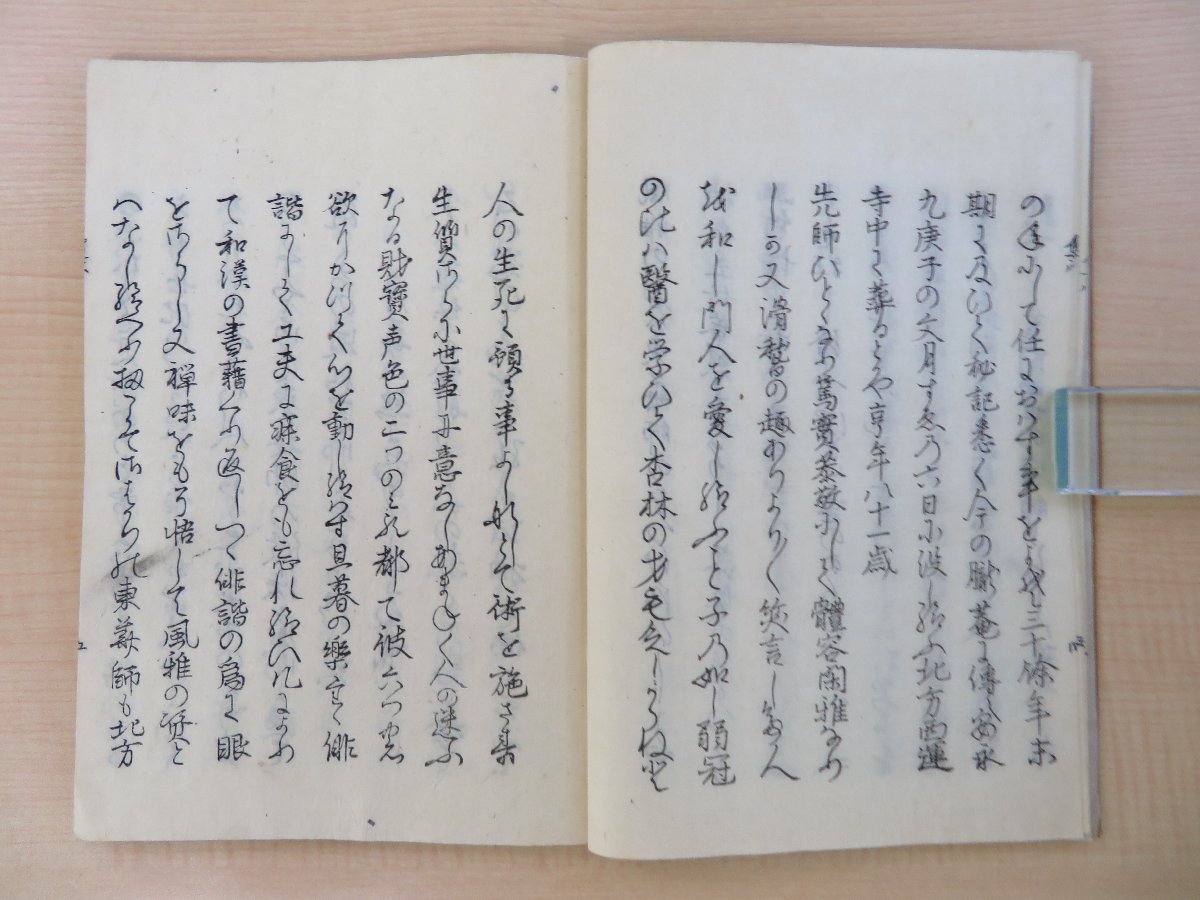 の間にして任におはす事をよそ三十餘年末
期に及ひて秘記悉く今の朧菴に傳へ安永
九庚子の文月すゑの六日に没し給ふ北方西蓮
寺中に葬るとや享年八十一歳
先師ひとゝなり篤實恭敬にして體容閑雅なり
しか又滑稽の趣ありよりより笑言し衆人
を和し門人を愛し給ふこと子の如し弱冠
の比は醫を学ひて杏林の才も乏しからねと
人の生死に預る事よしなしとて術を施さす
生質さらに世事に意なしあまねく人の迷ふ
なる財寶声色の二つのもの都て彼六つの
欲にかけて心を動し給はす旦暮の樂たゝ俳
諧にして工夫に寐食をも忘れ給ひけるにより
て和漢の書藉くり返しつゝ俳諧の為に眼
をさらし又禪味をも了悟して風雅の資と
はなし給へり扨こそさはかりの東華師も北方